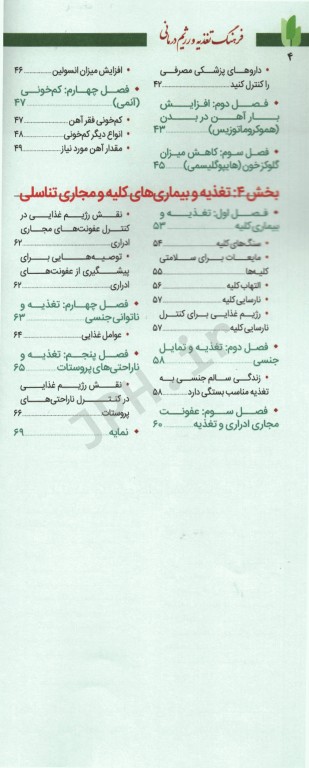 فرهنگ تغذیه و رژیم درمانی
۴
• داروهای پزشکی مصرفی
را کنترل کنید ........ ۴۲
• فصل دوم: افزایش
بار آهن در بدن
(هموکروماتوزیس) ........ ۴۳
• فصل سوم: کاهش میزان
گلوکز خون (هایپوگلیسمی) .... ۴۵
• افزایش میزان انسولین ........ ۴۶
• فصل چهارم: کم‌خونی
(آنمی) ........ ۴۷
• کم‌خونی فقر آهن ........ ۴۷
• انواع دیگر کم‌خونی ........ ۴۸
• مقدار آهن مورد نیاز ........ ۴۹
بخش ۴: تغذیه و بیماری‌های کلیه و مجاری تناسلی
• فصل اول: تغذیه و
بیماری کلیه ........ ۵۳
• سنگ‌های کلیه ........ ۵۴
• مایعات برای سلامتی
کلیه‌ها ........ ۵۵
• التهاب کلیه ........ ۵۶
• نارسایی کلیه ........ ۵۷
• رژیم غذایی برای کنترل
نارسایی کلیه ........ ۵۷
• فصل دوم: تغذیه و تمایل
جنسی ........ ۵۸
• زندگی سالم جنسی به
تغذیه مناسب بستگی دارد .... ۵۸
• فصل سوم: عفونت
مجاری ادراری و تغذیه ........ ۶۰
• نقش رژیم غذایی در
کنترل عفونت‌های مجاری
ادراری ........ ۶۲
• توصیه‌هایی برای
پیشگیری از عفونت‌های
ادراری ........ ۶۲
• فصل چهارم: تغذیه و
ناتوانی جنسی ........ ۶۳
• عوامل غذایی ........ ۶۴
• فصل پنجم: تغذیه و
ناراحتی‌های پروستات ........ ۶۵
• نقش رژیم غذایی
در کنترل ناراحتی‌های
پروستات ........ ۶۶
• نمایه ........ ۶۹